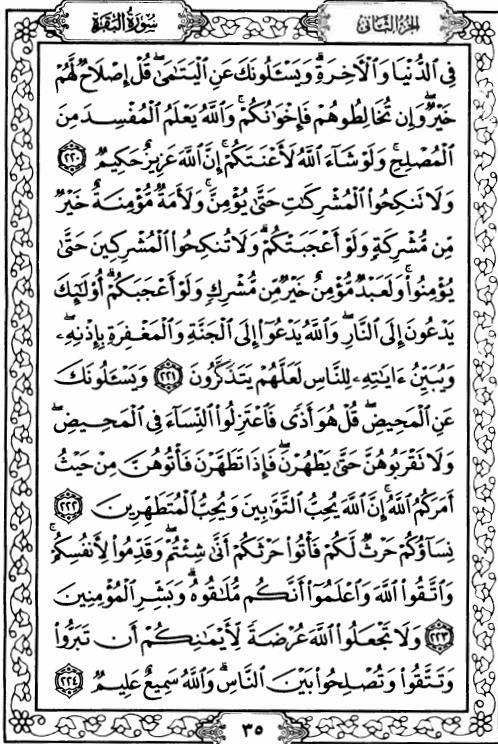 سورة البقرة الجزء الثاني
فِي ٱلدُّنْيَا وَٱلْءَاخِرَةِۗ وَيَسْـَٔلُونَكَ عَنِ ٱلْيَتَٰمَىٰۖ قُلْ إِصْلَاحٌ لَّهُمْ
خَيْرٌۖ وَإِن تُخَالِطُوهُمْ فَإِخْوَٰنُكُمْۚ وَٱللَّهُ يَعْلَمُ ٱلْمُفْسِدَ مِنَ
ٱلْمُصْلِحِۚ وَلَوْ شَآءَ ٱللَّهُ لَأَعْنَتَكُمْۚ إِنَّ ٱللَّهَ عَزِيزٌ حَكِيمٌ ٢٢٠
وَلَا تَنكِحُوا۟ ٱلْمُشْرِكَٰتِ حَتَّىٰ يُؤْمِنَّۚ وَلَأَمَةٌ مُّؤْمِنَةٌ خَيْرٌ
مِّن مُّشْرِكَةٍ وَلَوْ أَعْجَبَتْكُمْۗ وَلَا تُنكِحُوا۟ ٱلْمُشْرِكِينَ حَتَّىٰ
يُؤْمِنُوا۟ۚ وَلَعَبْدٌ مُّؤْمِنٌ خَيْرٌ مِّن مُّشْرِكٍ وَلَوْ أَعْجَبَكُمْۗ أُو۟لَٰٓئِكَ
يَدْعُونَ إِلَى ٱلنَّارِۖ وَٱللَّهُ يَدْعُوٓا۟ إِلَى ٱلْجَنَّةِ وَٱلْمَغْفِرَةِ بِإِذْنِهِۦۖ
وَيُبَيِّنُ ءَايَٰتِهِۦ لِلنَّاسِ لَعَلَّهُمْ يَتَذَكَّرُونَ ٢٢١ وَيَسْـَٔلُونَكَ
عَنِ ٱلْمَحِيضِۖ قُلْ هُوَ أَذًى فَٱعْتَزِلُوا۟ ٱلنِّسَآءَ فِي ٱلْمَحِيضِۖ
وَلَا تَقْرَبُوهُنَّ حَتَّىٰ يَطْهُرْنَۖ فَإِذَا تَطَهَّرْنَ فَأْتُوهُنَّ مِنْ حَيْثُ
أَمَرَكُمُ ٱللَّهُۚ إِنَّ ٱللَّهَ يُحِبُّ ٱلتَّوَّٰبِينَ وَيُحِبُّ ٱلْمُتَطَهِّرِينَ ٢٢٢
نِسَآؤُكُمْ حَرْثٌ لَّكُمْ فَأْتُوا۟ حَرْثَكُمْ أَنَّىٰ شِئْتُمْۖ وَقَدِّمُوا۟ لِأَنفُسِكُمْۚ
وَٱتَّقُوا۟ ٱللَّهَ وَٱعْلَمُوٓا۟ أَنَّكُم مُّلَٰقُوهُۗ وَبَشِّرِ ٱلْمُؤْمِنِينَ
٢٢٣ وَلَا تَجْعَلُوا۟ ٱللَّهَ عُرْضَةً لِّأَيْمَٰنِكُمْ أَن تَبَرُّوا۟
وَتَتَّقُوا۟ وَتُصْلِحُوا۟ بَيْنَ ٱلنَّاسِۗ وَٱللَّهُ سَمِيعٌ عَلِيمٌ ٢٢٤
٣٥